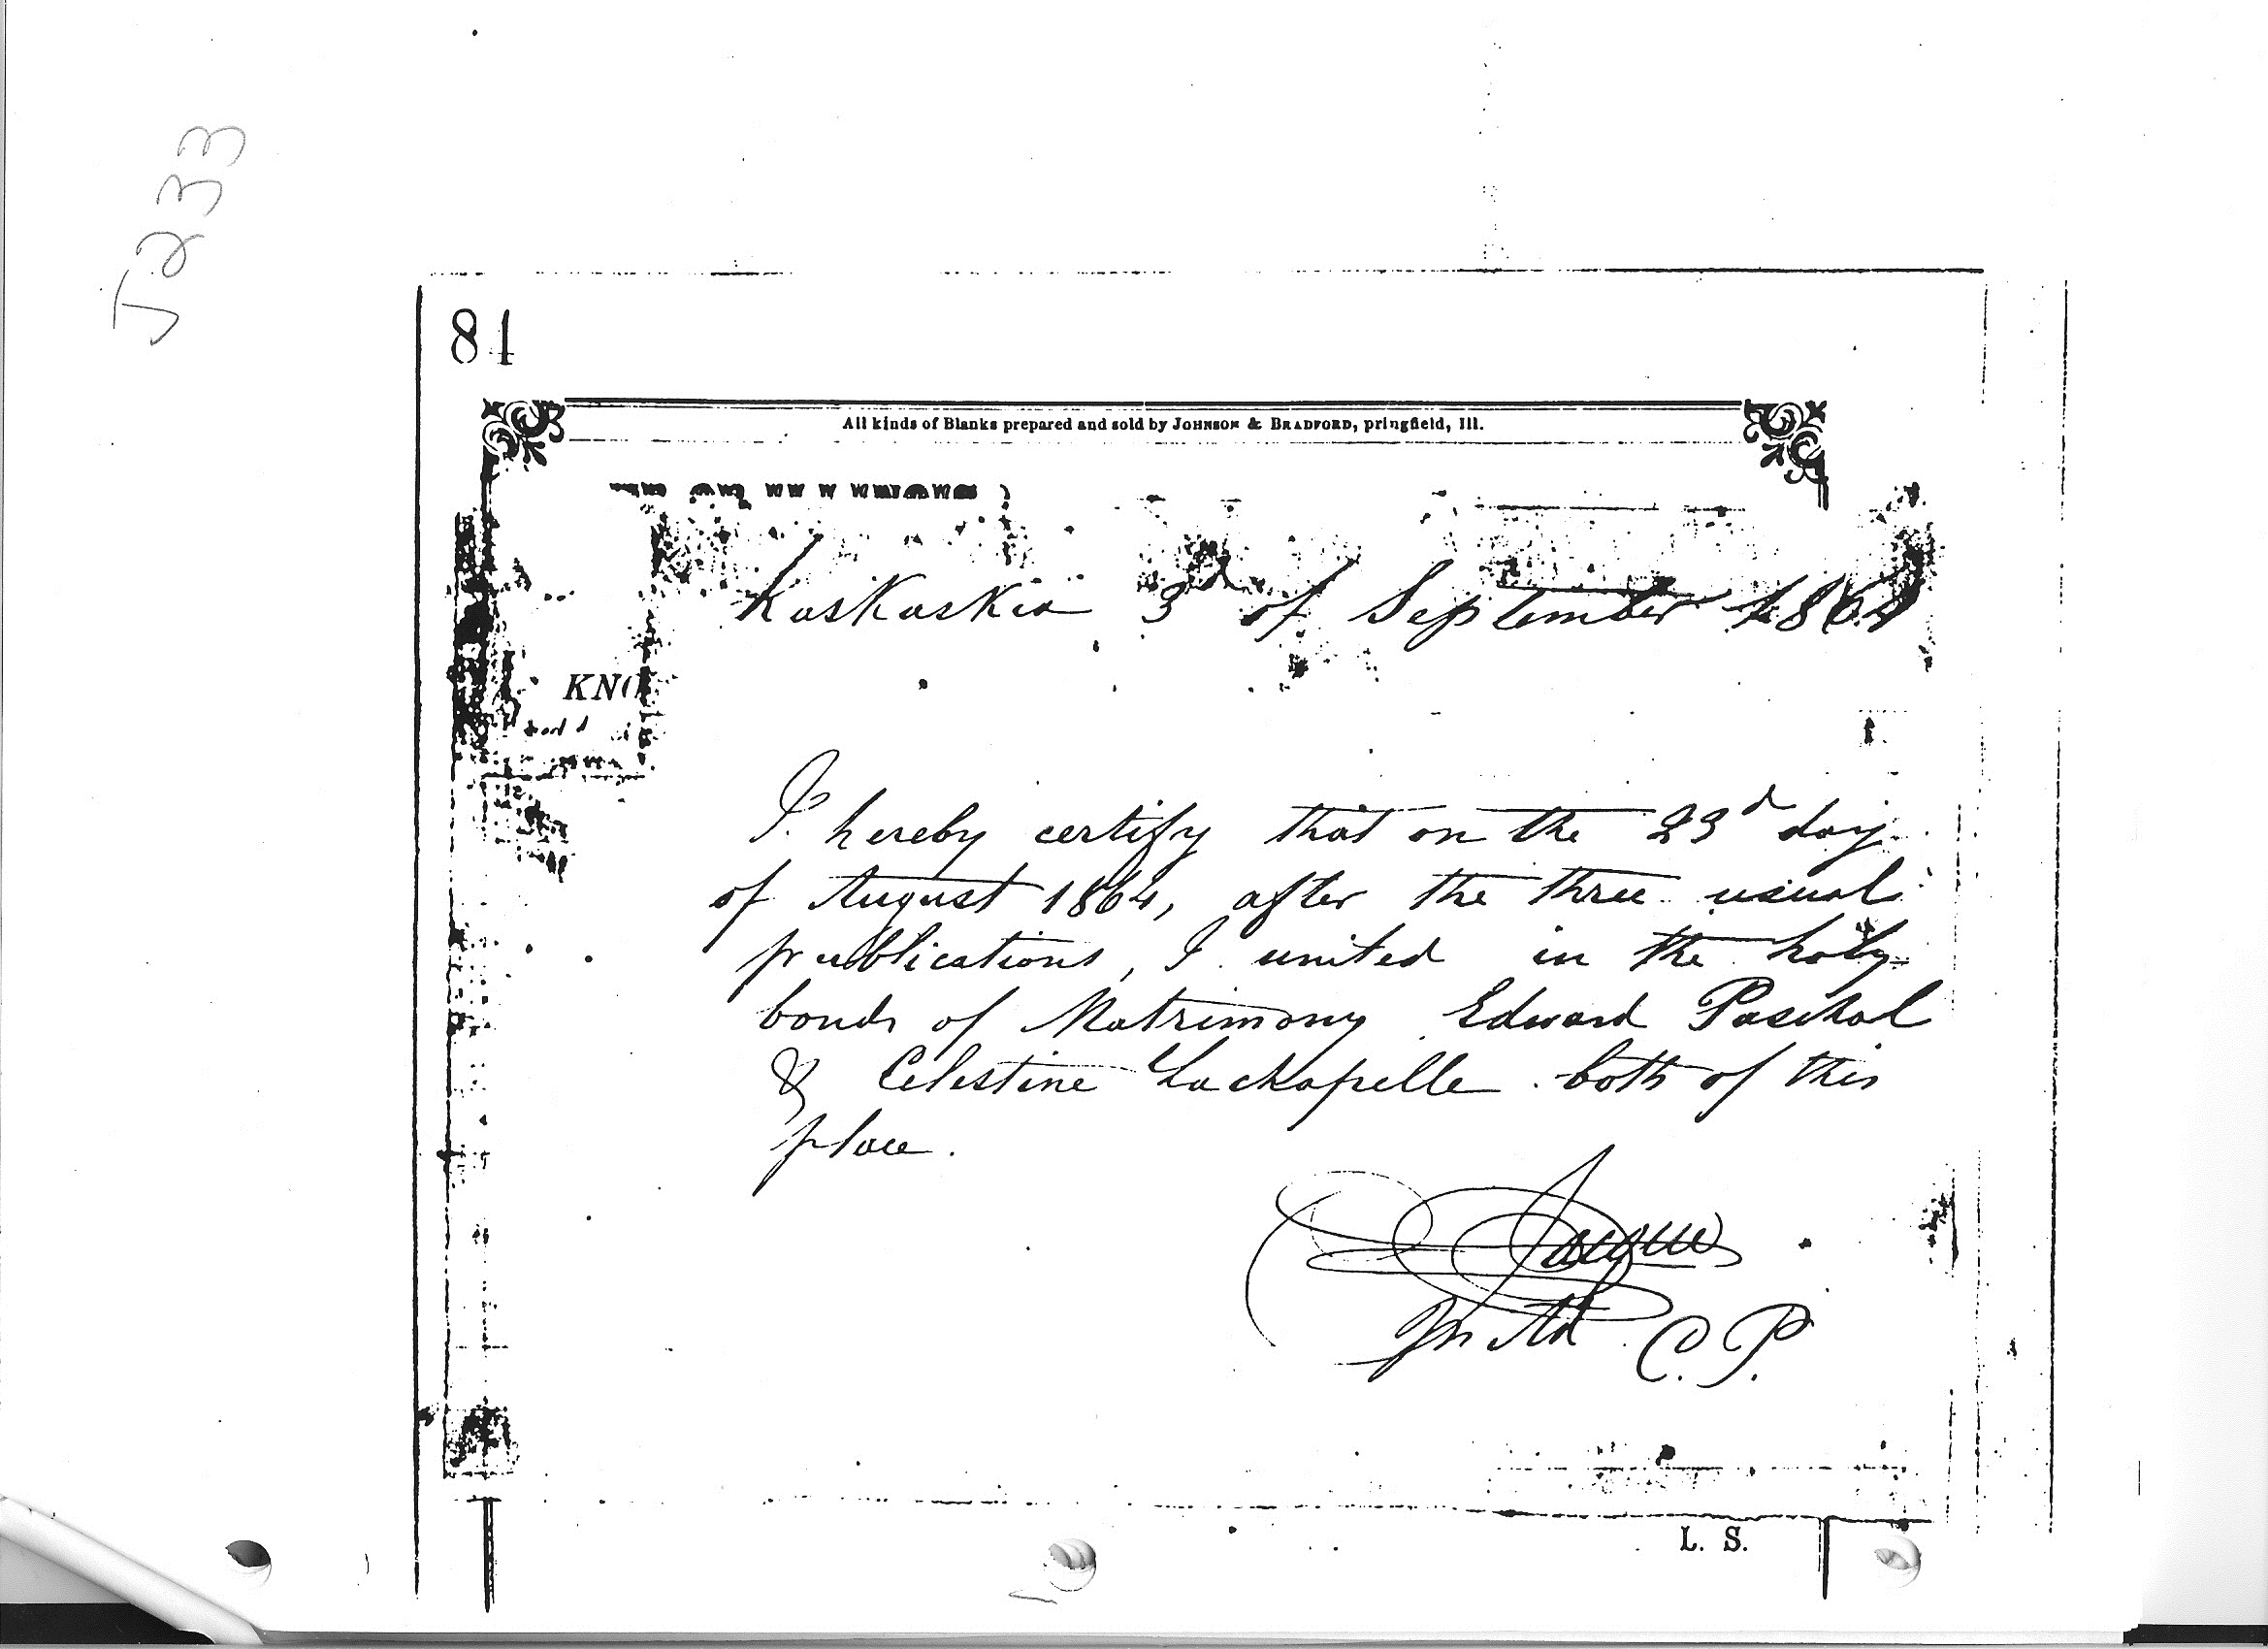 J233
81
All kinds of Blanks prepared and sold by JOHNSON & BRADFORD, pringfield, Ill.
Kaskaskia 3d of September 1864
KNO
I hereby certify that on the 23d day
of August 1864, after the three usual
publications, I united in the holy
bonds of Matrimony Edward Paschal
& Celestine Lachapelle both of this
place.
Jacque
C. P.
L. S.